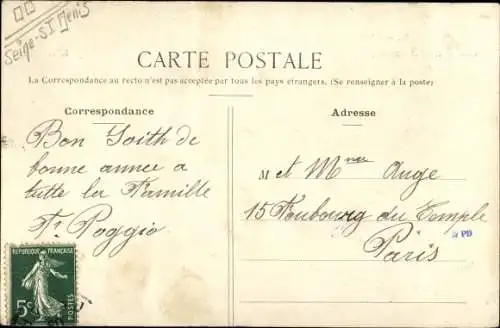 Seine-St Denis
CARTE POSTALE
La Correspondance au recto n'est pas acceptée par tous les pays étrangers. (Se renseigner à la poste)
Correspondance
Adresse
Bon Soith de
bonne annee a
tutte la Famille
F. Poggio
M et Mme Auge
15 Faubourg du Temple
Paris
PD
REPUBLIQUE FRANÇAISE
5c
POSTES